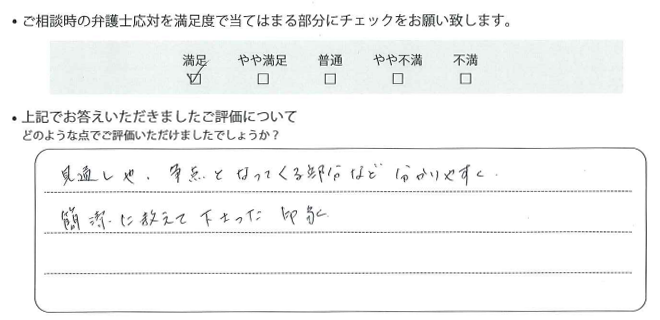 • ご相談時の弁護士応対を満足度で当てはまる部分にチェックをお願い致します。
満足 やや満足 普通 やや不満 不満
☑ □ □ □ □
• 上記でお答えいただきましたご評価について
どのような点でご評価いただけましたでしょうか？
見通しや、争点となってくる部分など分かりやすく、
簡潔に教えて下さった印象